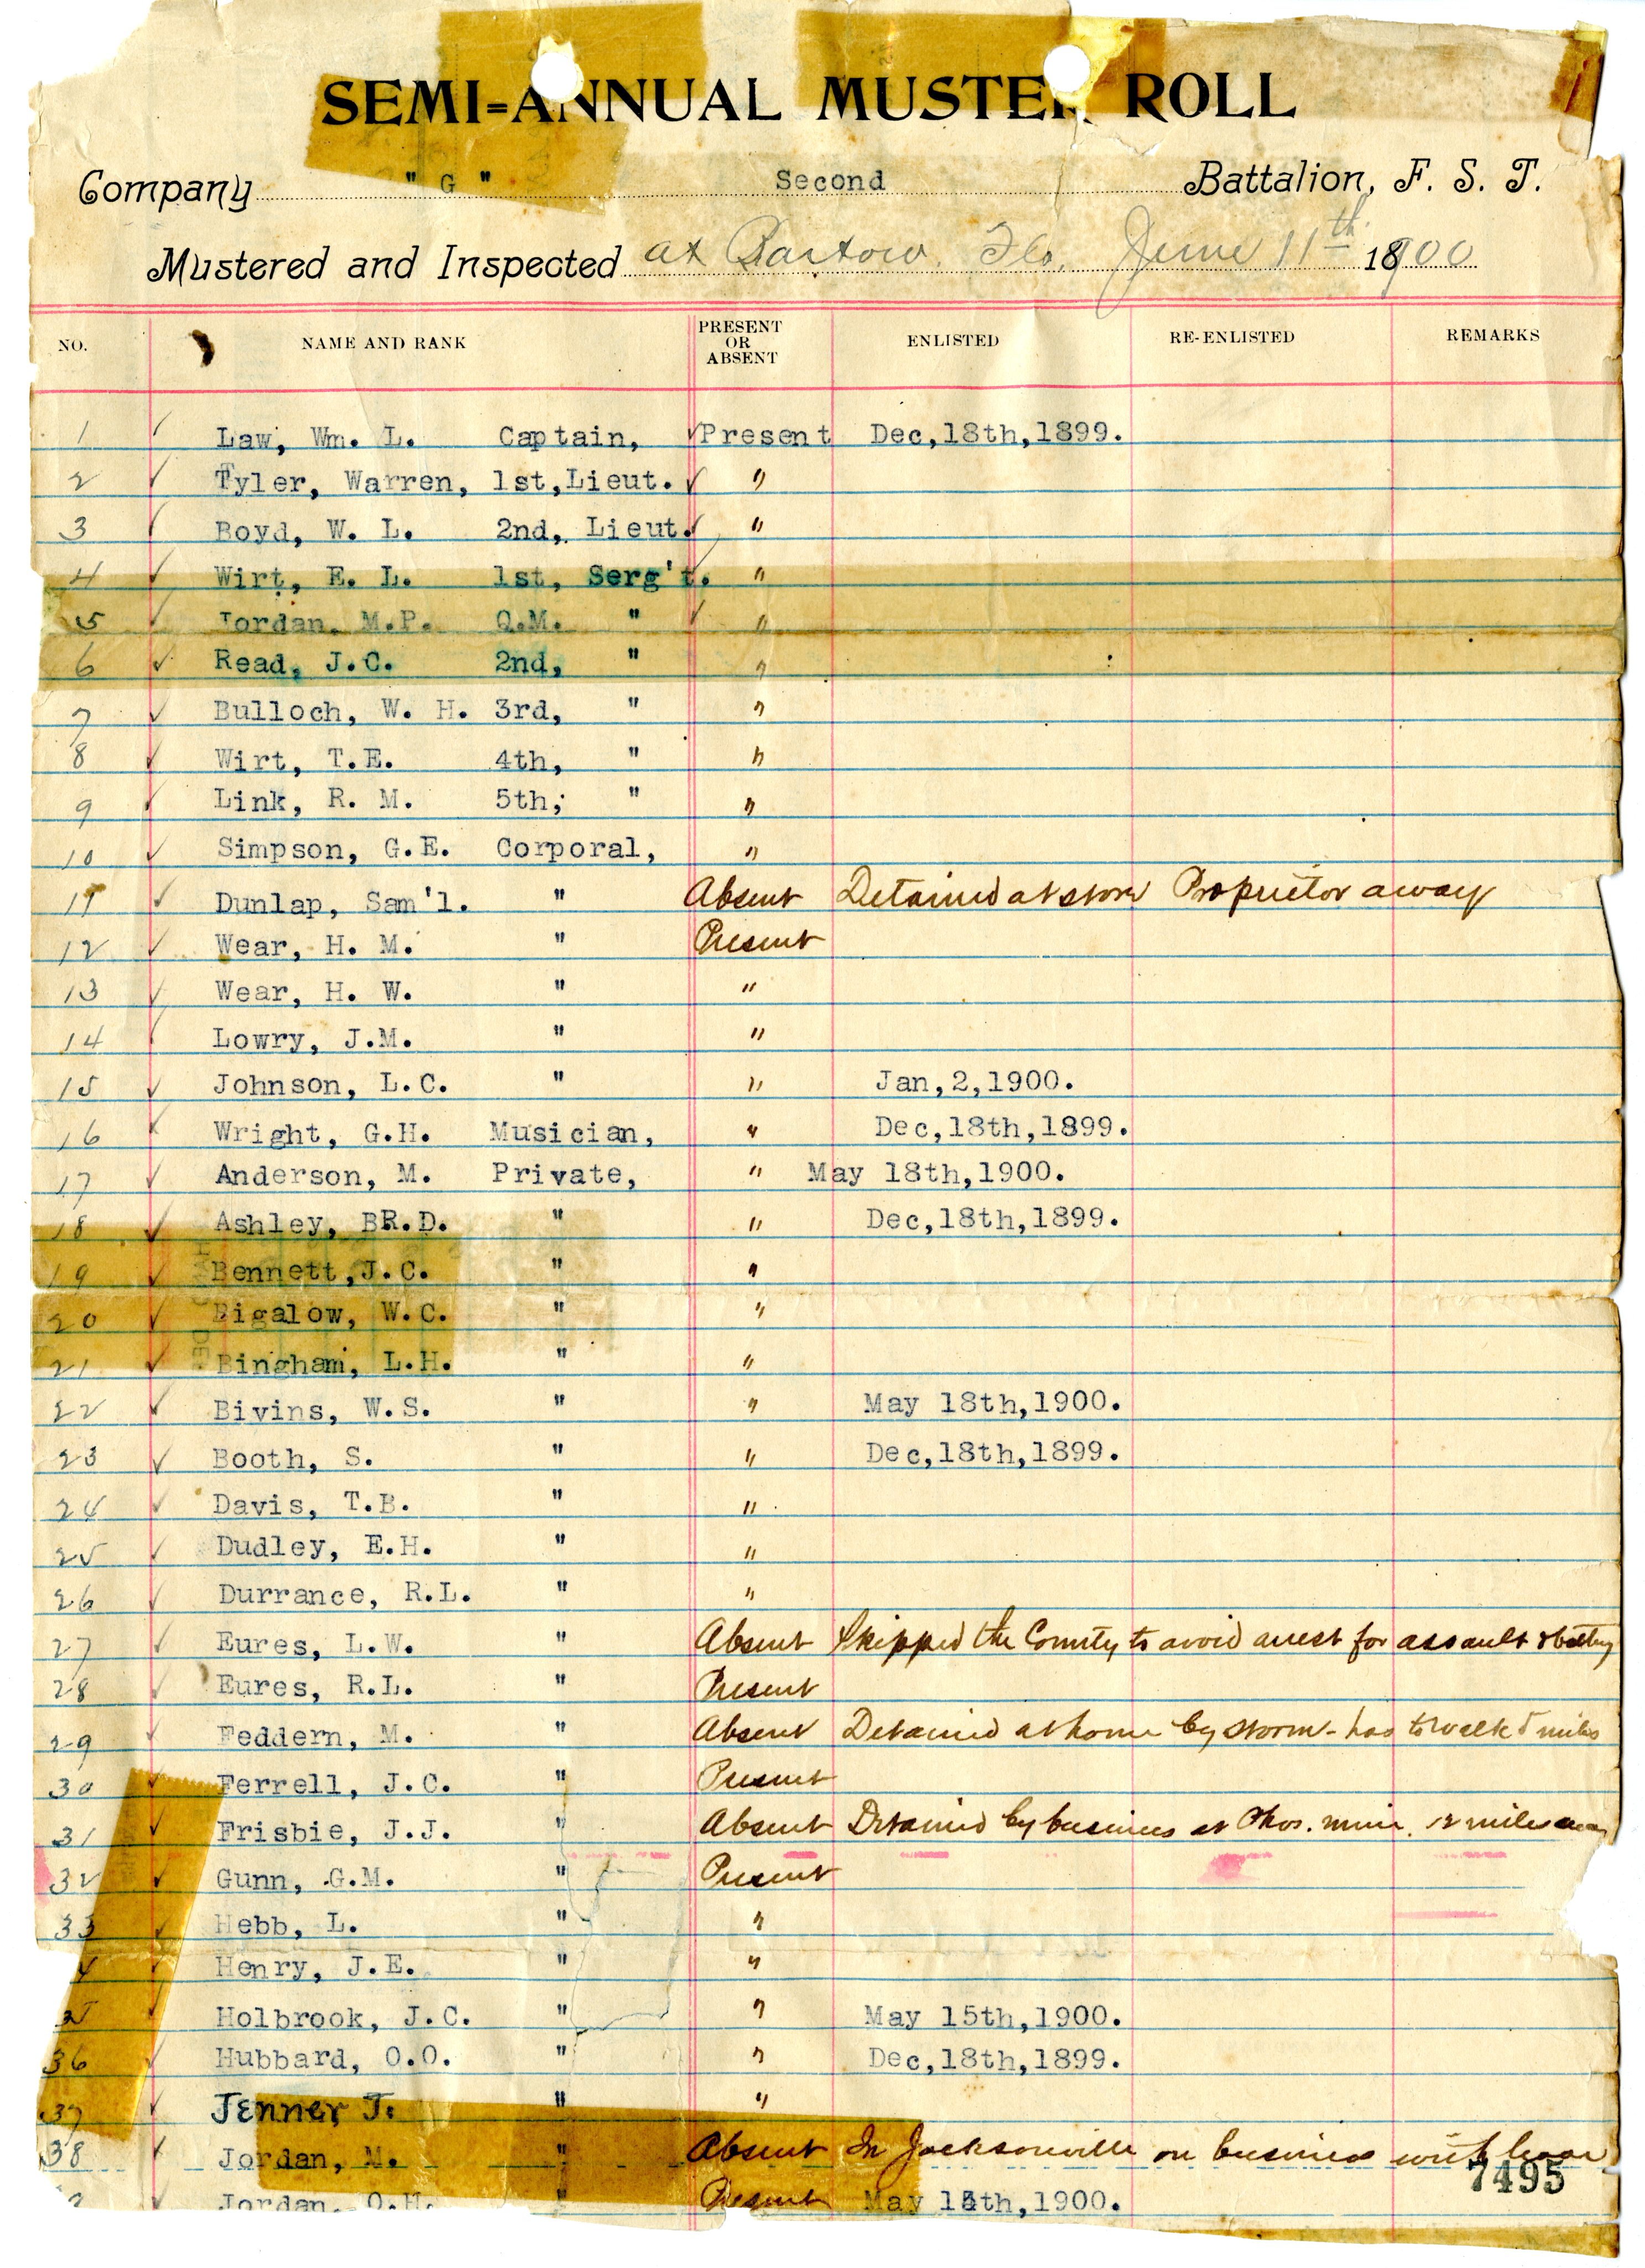 SEMI=ANNUAL MUSTER ROLL
Company " G " Second Battalion, F. S. T.
Mustered and Inspected at Bartow. Flo, June 11th 1900
NO. NAME AND RANK PRESENT OR ABSENT ENLISTED RE-ENLISTED REMARKS
1 Law, Wm. L. Captain, Present Dec,18th,1899.
2 Tyler, Warren, 1st,Lieut. "
3 Boyd, W. L. 2nd, Lieut. "
4 Wirt, E. L. 1st, Serg't. "
5 Jordan, M.P. Q.M. " "
6 Read, J.C. 2nd, " "
7 Bulloch, W. H. 3rd, " "
8 Wirt, T.E. 4th, " "
9 Link, R. M. 5th; " "
10 Simpson, G.E. Corporal, "
11 Dunlap, Sam'l. " Absent Detained at store Proprietor away
12 Wear, H. M. " Present
13 Wear, H. W. " "
14 Lowry, J.M. " "
15 Johnson, L.C. " " Jan,2,1900.
16 Wright, G.H. Musician, " Dec,18th,1899.
17 Anderson, M. Private, " May 18th,1900.
18 Ashley, BR.D. " " Dec,18th,1899.
19 Bennett,J.C. " "
20 Bigalow, W.C. " "
21 Bingham, L.H. " "
22 Bivins, W.S. " " May 18th,1900.
23 Booth, S. " " Dec,18th,1899.
24 Davis, T.B. " "
25 Dudley, E.H. " "
26 Durrance, R.L. " "
27 Eures, L.W. " Absent Skipped the County to avoid arrest for assault & battery
28 Eures, R.L. " Present
29 Feddern, M. " Absent Detained at home by storm - has to walk 5 miles
30 Ferrell, J.C. " Present
31 Frisbie, J.J. " Absent Detained by business at Phos. mine. 12 miles away
32 Gunn, G.M. " Present
33 Hebb, L. " "
4 Henry, J.E. " "
35 Holbrook, J.C. " " May 15th,1900.
36 Hubbard, O.O. " " Dec,18th,1899.
37 Jenner J. " "
38 Jordan, M. " Absent In Jacksonville on business with leave
Jordan, O.H. " Present May 15th,1900.
7495